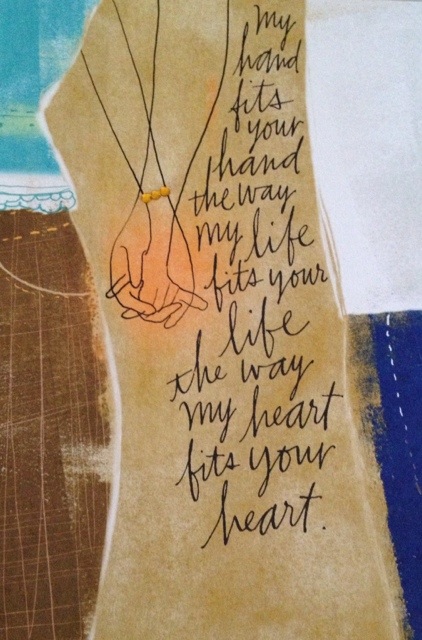 my
hand
fits
your
hand
the way
my life
fits your
life
the way
my heart
fits your
heart.